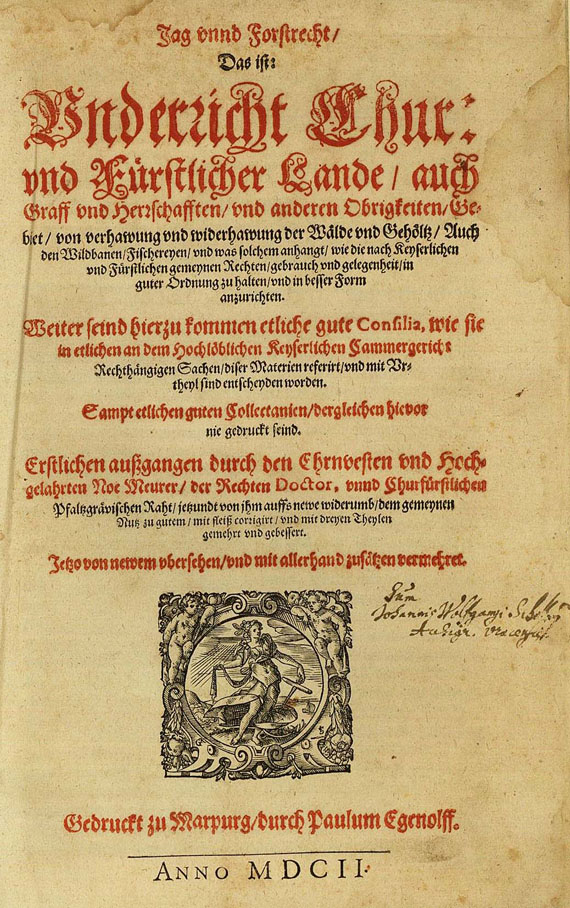 Jag vnnd Forstrecht/
Das ist:
Vnderricht Chur:
vnd Fürstlicher Lande/ auch
Graff vnd Herrschafften/ vnd anderen Obrigkeiten/ Ge-
biet/ von verhawung vnd widerhawung der Wälde vnd Gehöltz/ Auch
den Wildbanen/ Fischereyen/ vnd was solchem anhangt/ wie die nach Keyserlichen
vnd Fürstlichen gemeynen Rechten/ gebrauch vnd gelegenheit/ in
guter Ordnung zu halten/ vnd in besser Form
anzurichten.
Weiter seind hierzu kommen etliche gute Consilia, wie sie
in etlichen an dem Hochlöblichen Keyserlichen Cammergericht
Rechthängigen Sachen/ diser Materien referirt/ vnd mit Vr-
theyl sind entscheyden worden.
Sampt etlichen guten Collectanien/ dergleichen hievor
nie gedruckt seind.
Erstlichen außgangen durch den Ehrnvesten vnd Hoch-
gelahrten Noe Meurer/ der Rechten Doctor, vnnd Churfürstlichen
Pfaltzgrävischen Raht/ jetzundt von jhm auffs newe widerumb/ dem gemeynen
Nutz zu gutem/ mit fleiß corrigirt/ vnd mit dreyen Theylen
gemehrt vnd gebessert.
Jetzo von newem vbersehen/ vnd mit allerhand zusätzen vermehret.
Sum
Johannis Wolfgangi
Gedruckt zu Marpurg/ durch Paulum Egenolff.
ANNO MDCII.